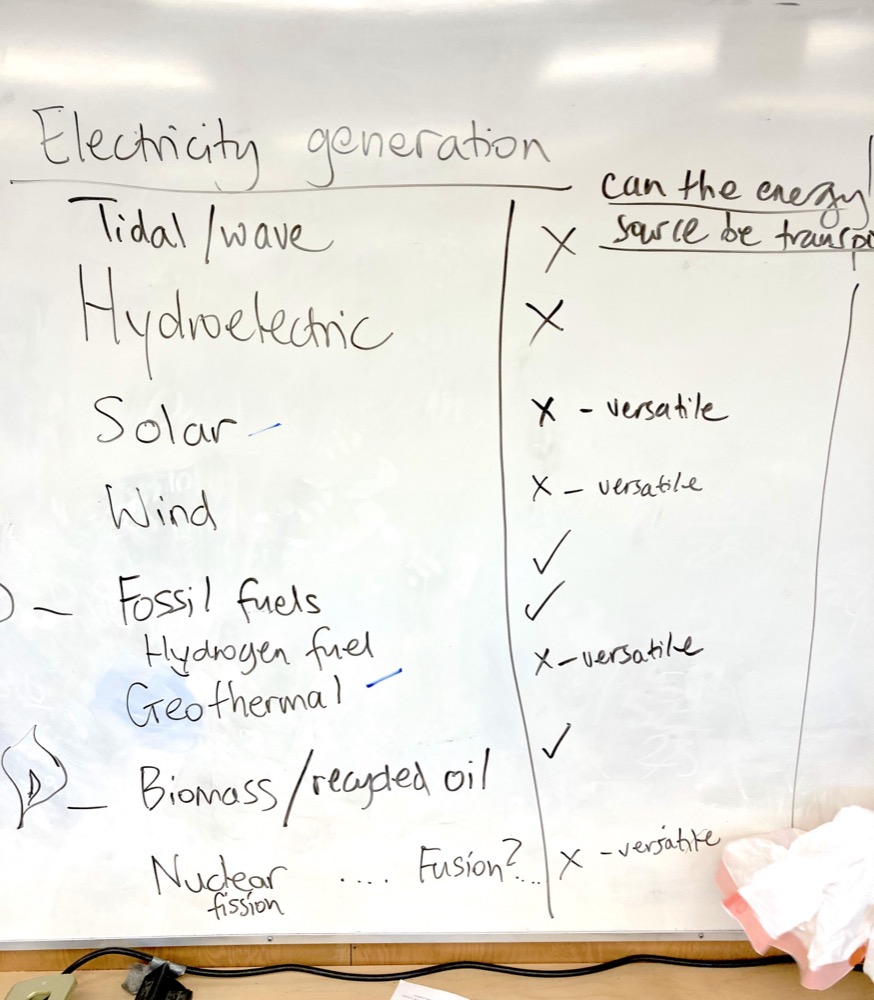 Electricity generation
can the energy
source be
Tidal/wave X
Hydroelectric X
Solar - X - versatile
Wind X - versatile
✓
- Fossil fuels ✓
Hydrogen fuel X - versatile
Geothermal -
✓
- Biomass/recycled oil
Nuclear .... Fusion?... X - versatile
fission